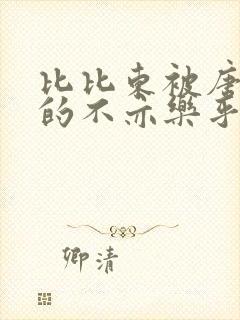 比比东被唐
的不亦乐乎
卿清